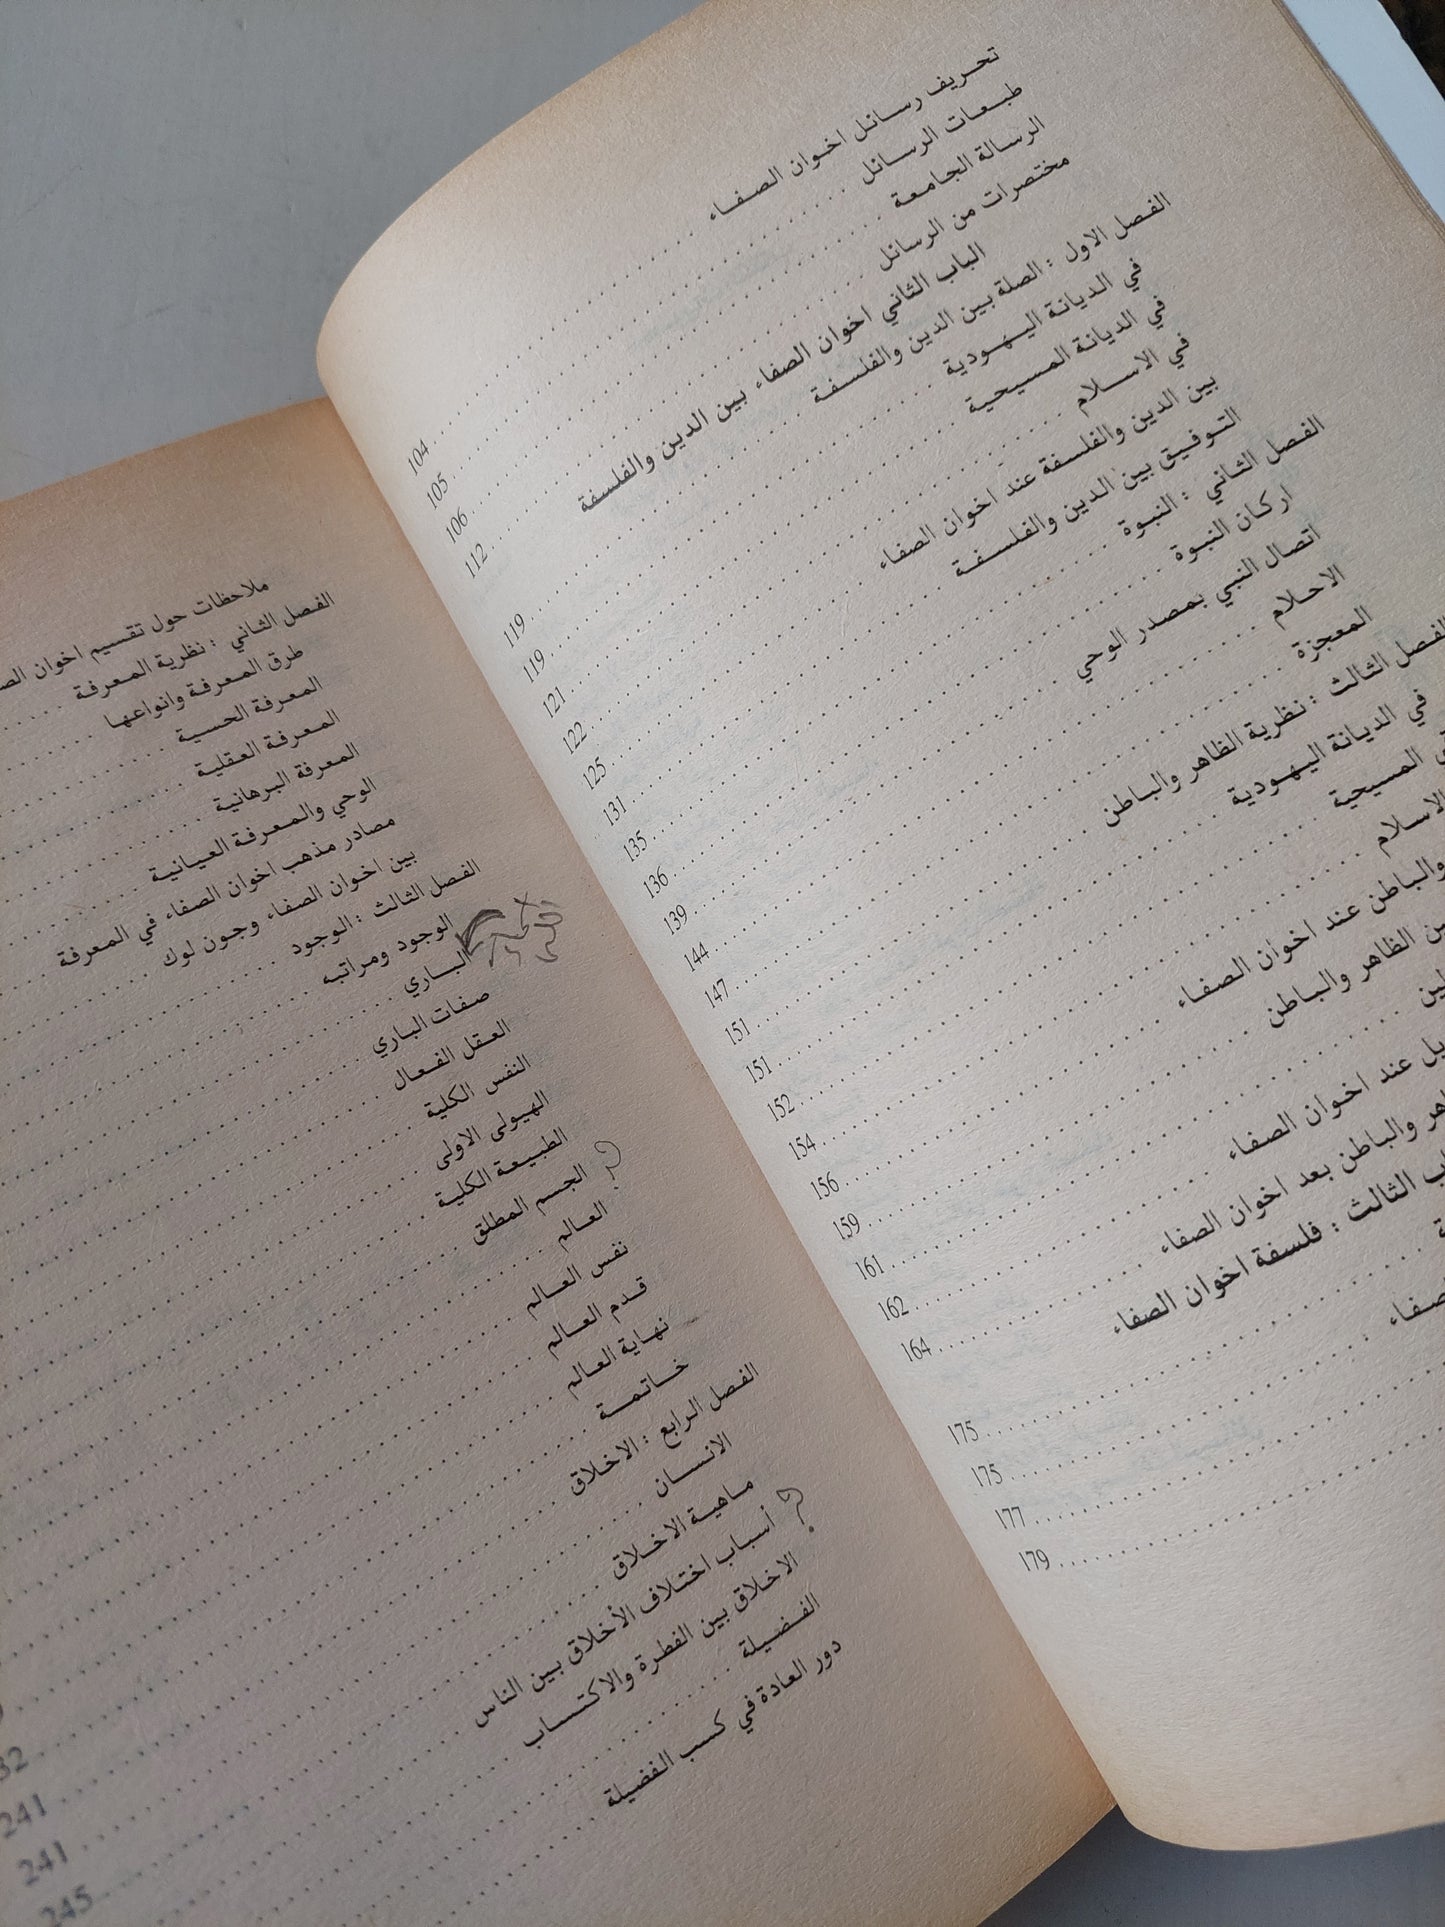 تحريف رسائل اخوان الصفاء ........ 104
طبعات الرسائل ........ 105
الرسالة الجامعة ........ 106
مختصرات من الرسائل ........ 112
الباب الثاني اخوان الصفاء بين الدين والفلسفة
الفصل الاول : الصلة بين الدين والفلسفة ........ 119
في الديانة اليهودية ........ 119
في الديانة المسيحية ........ 121
في الاسلام ........ 122
بين الدين والفلسفة عند اخوان الصفاء ........ 125
التوفيق بين الدين والفلسفة ........ 131
الفصل الثاني : النبوة ........ 135
اركان النبوة ........ 136
اتصال النبي بمصدر الوحي ........ 139
الاحلام ........ 144
المعجزة ........ 147
الفصل الثالث : نظرية الظاهر والباطن ........ 151
في الديانة اليهودية ........ 151
المسيحية ........ 152
الاسلام ........ 154
والباطن عند اخوان الصفاء ........ 156
الظاهر والباطن ........ 159
........ 161
عند اخوان الصفاء ........ 162
والباطن بعد اخوان الصفاء ........ 164
الثالث : فلسفة اخوان الصفاء
........ 175
........ 175
........ 177
........ 179
ملاحظات حول تقسيم اخوان
الفصل الثاني : نظرية المعرفة ........
طرق المعرفة وانواعها ........
المعرفة الحسية ........
المعرفة العقلية ........
المعرفة البرهانية ........
الوحي والمعرفة العيانية ........
مصادر مذهب اخوان الصفاء في المعرفة ........
بين اخوان الصفاء وجون لوك ........
الفصل الثالث : الوجود ........
الوجود ومراتبه ........
الباري ........
صفات الباري ........
العقل الفعال ........
النفس الكلية ........
الهيولى الاولى ........
الطبيعة الكلية ........
الجسم المطلق ........
العالم ........
نفس العالم ........
قدم العالم ........
نهاية العالم ........
خاتمة ........
الفصل الرابع : الاخلاق ........ 241
الانسان ........ 241
ماهية الاخلاق ........ 245
أسباب اختلاف الأخلاق بين الناس ........
الاخلاق بين الفطرة والاكتساب ........
الفضيلة ........
دور العادة في كسب الفضيلة ........